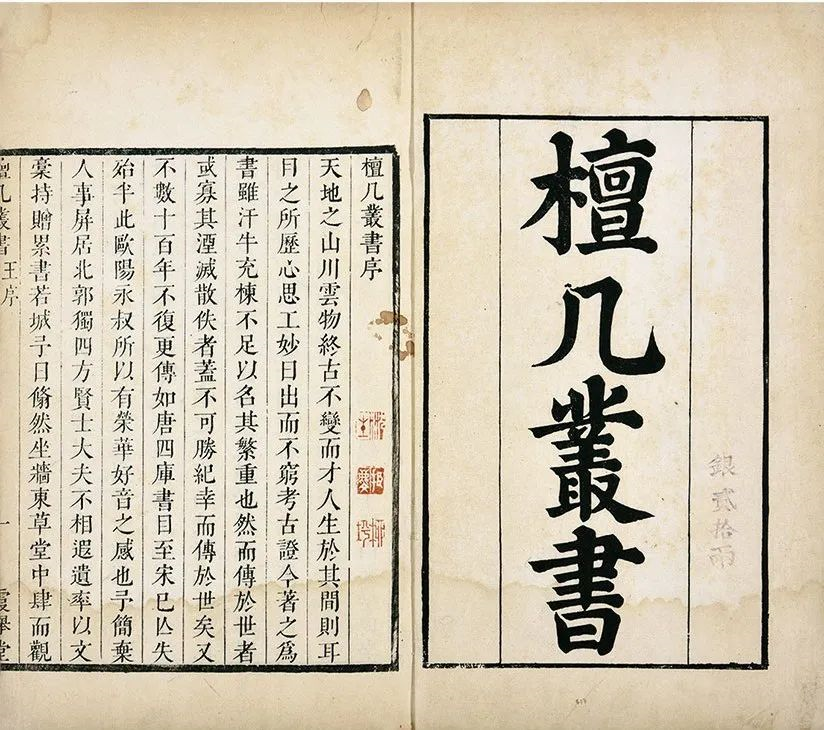 檀几叢書
銀貳拾兩
檀几叢書序
天地之山川雲物終古不變而才人生於其間則耳
目之所歷心思工妙日出而不窮考古證今著之爲
書雖汗牛充棟不足以名其繁重也然而傳於世者
或寡其湮滅散佚者蓋不可勝紀幸而傳於世矣又
不數十百年不復更傳如唐四庫書目至宋已亾失
始半此歐陽永叔所以有榮華好音之感也予簡棄
人事屏居北郭獨四方賢士大夫不相遐遺率以文
稾持贈累書若城予日翛然坐牆東草堂中肆而觀
檀几叢書 王序 一 霞舉堂